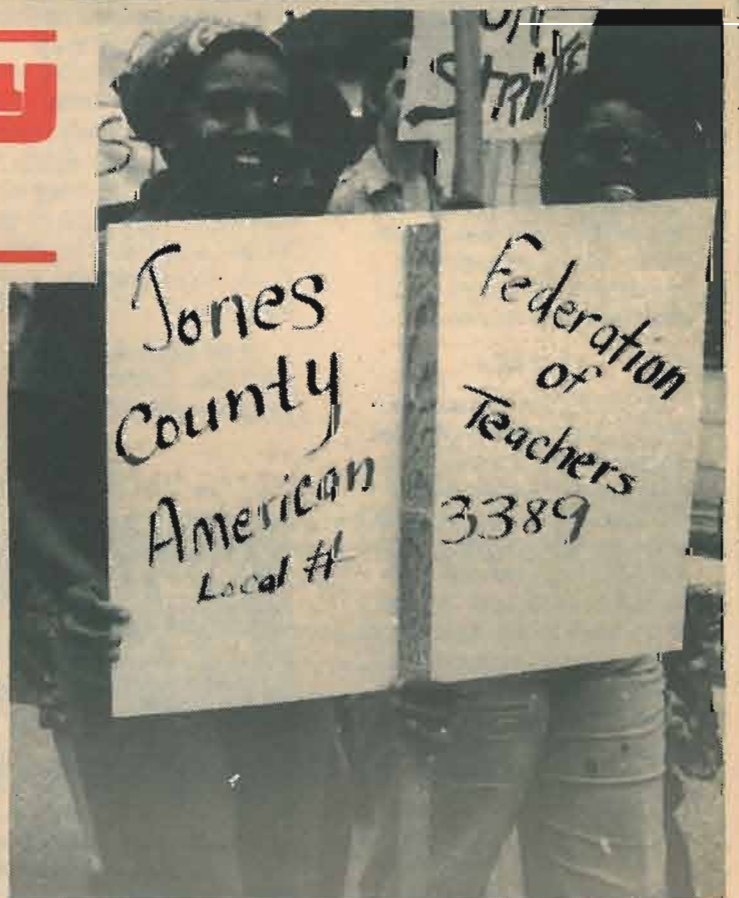 y
ON
STRIKE
Jones
County
American
Local #
Federation
of
Teachers
3389